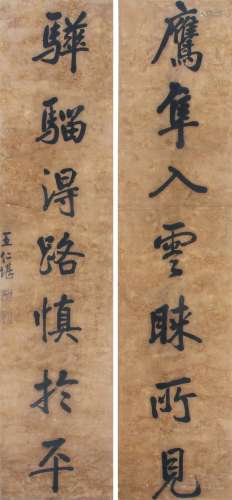 鷹隼入雲睞所見
驊騮得路慎於平
王仁堪